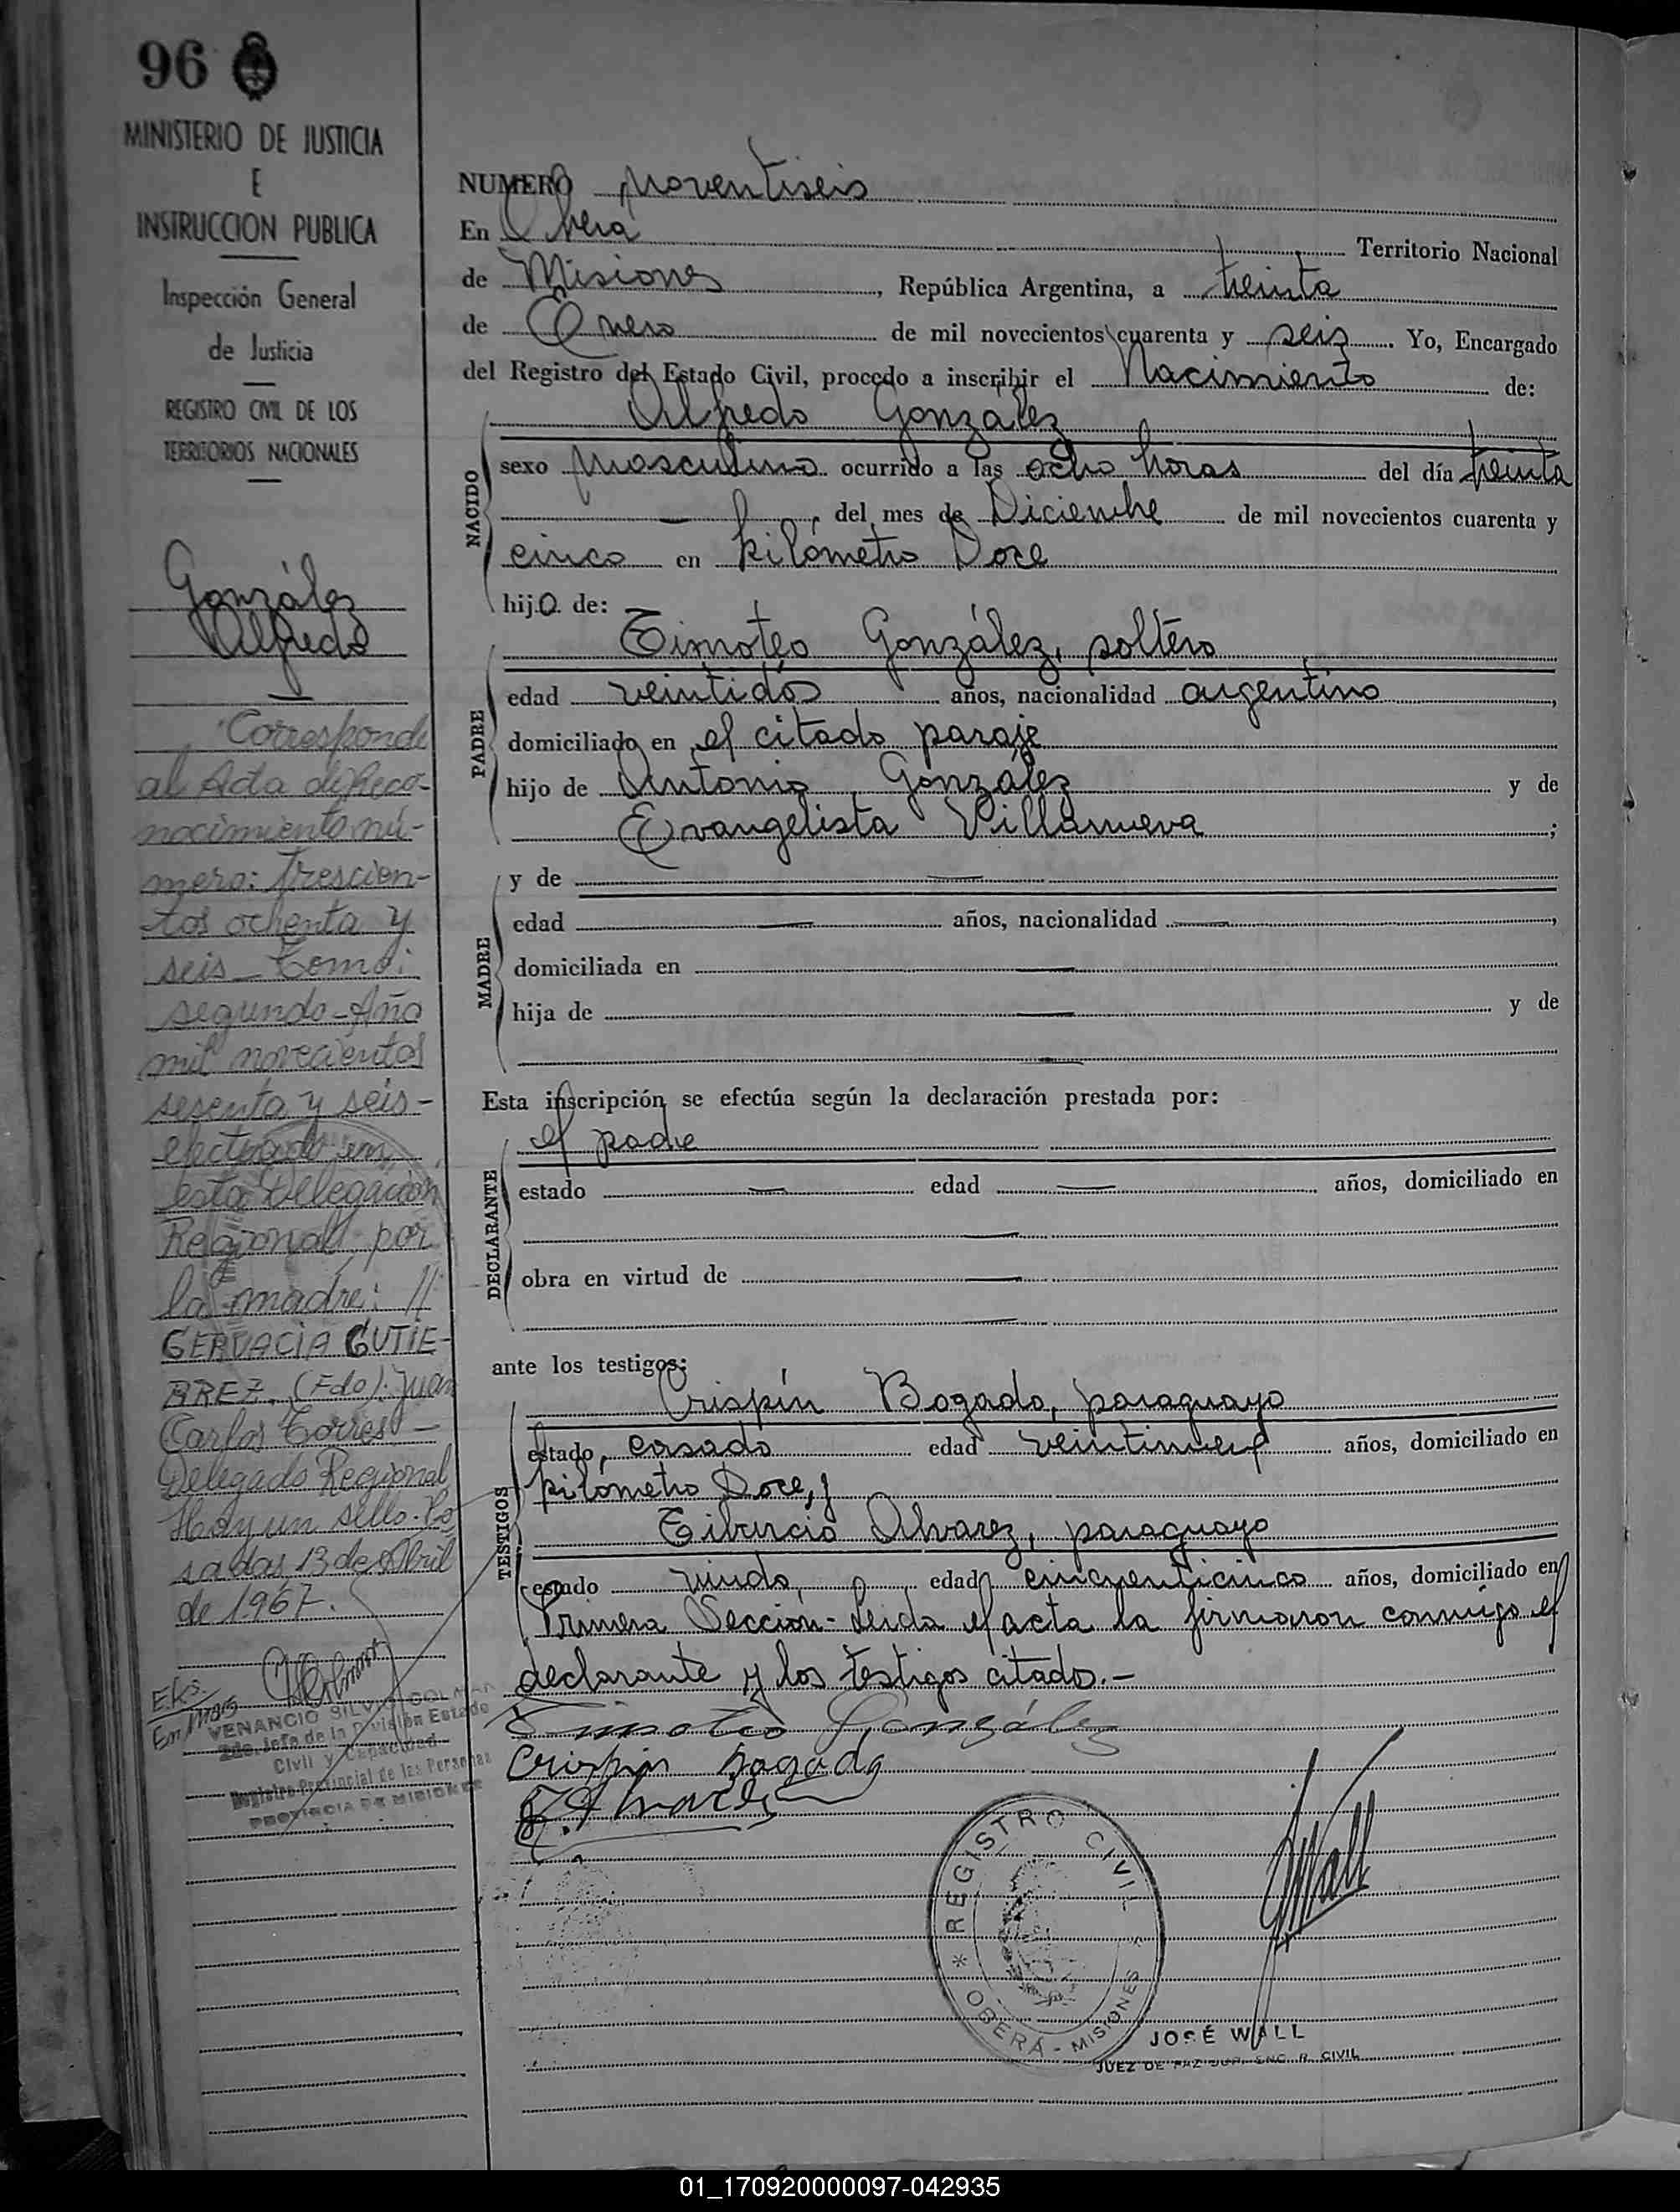 96
MINISTERIO DE JUSTICIA
E
INSTRUCCION PUBLICA
Inspección General
de Justicia
REGISTRO CIVIL DE LOS
TERRITORIOS NACIONALES
González
Alfredo
Corresponde
al Acta de Reco-
nocimiento nú-
mero: trescien-
tos ochenta y
seis - Tomo:
segundo - Año
mil novecientos
sesenta y seis -
efectuado en
esta Delegación
Regional por
la madre: //
GERVACIA GUTIE-
RREZ. (Fdo). Juan
Carlos Torres -
Delegado Regional
Hay un sello. Po-
sadas, 13 de Abril
de 1967.
VENANCIO SILV COLMAN
2do. Jefe de la División Estado
Civil y Capacidad
Registro Provincial de las Personas
PROVINCIA DE MISIONES
NUMERO noventiseis
En Obera Territorio Nacional
de Misiones, República Argentina, a treinta
de Enero de mil novecientos cuarenta y seis. Yo, Encargado
del Registro del Estado Civil, procedo a inscribir el Nacimiento de:
Alfredo González
NACIDO
sexo masculino ocurrido a las ocho horas del día treinta
, del mes de Diciembre de mil novecientos cuarenta y
cinco en kilómetro Doce
hijo de:
PADRE
Timoteo González, soltero
edad veintidós años, nacionalidad argentino,
domiciliado en el citado paraje
hijo de Antonio González y de
Evangelista Villanueva;
MADRE
y de —
edad — años, nacionalidad —,
domiciliada en —
hija de — y de
—
Esta inscripción se efectúa según la declaración prestada por:
DECLARANTE
el padre
estado — edad — años, domiciliado en
—
obra en virtud de —
—
ante los testigos:
TESTIGOS
Crispín Bogado, paraguayo
estado, casado edad veintinueve años, domiciliado en
kilómetro Doce, y
Tiburcio Alvarez, paraguayo
estado viudo, edad cincuenticinco años, domiciliado en
Primera Sección - Leida el acta la firmaron conmigo el
declarante y los testigos citados.-
Timoteo González
Crispin Bogado
T. Alvarez
REGISTRO CIVIL
* OBERÁ - MISIONES *
JWall
JOSÉ WALL
JUEZ DE PAZ SUP. ENC. R. CIVIL
01_170920000097-042935